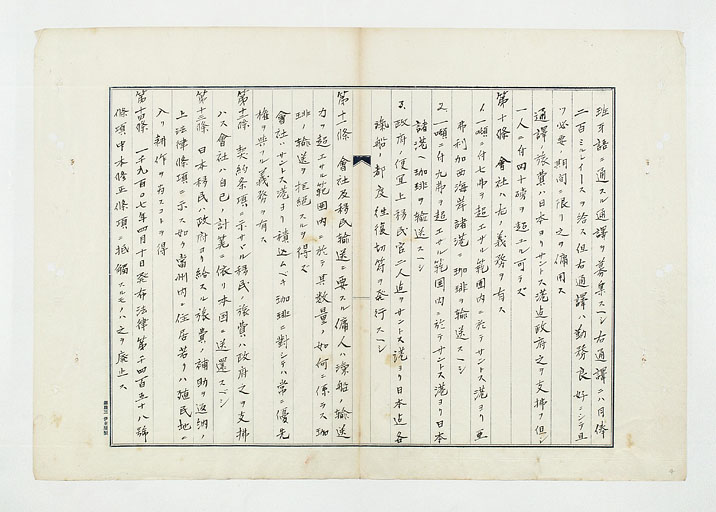 班牙語ニ通スル通譯ヲ募集スヘシ右通譯ニハ月俸
二百ミルレイースヲ給ス但右通譯ハ勤務良好ニシテ且
ツ必要期間ニ限リ之ヲ傭用ス
通譯ノ旅費ハ日本ヨリサントス港迄政府之ヲ支拂フ但シ
一人ニ付四十磅ヲ超エル可ラス
第十條 會社ハ尚ホ義務ヲ有ス
1. 一噸ニ付七弗ヲ超エサル範圍内ニ於テサントス港ヨリ亜
弗利加西海岸諸港ニ珈琲ヲ輸送スヘシ
2. 一噸ニ付九弗ヲ超エサル範圍内ニ於テサントス港ヨリ日本
諸港ヘ珈琲ヲ輸送スヘシ
3. 政府ノ便宜上移民官二人迄ヲサントス港ヨリ日本迄各
漁船ノ都度往復切符ヲ発行スヘシ
第十一條 會社及移民輸送ニ要スル傭人ハ漁船ノ輸送
力ヲ超エサル範囲内ニ於テ其数量ノ如何ニ係ラス珈
琲ノ輸送ヲ拒絶スルヲ得ズ
會社ハサントス港ヨリ積込ムベキ珈琲ニ對シテハ常ニ優先
権ヲ與フル義務ヲ有ス
第十二條 契約条項ニ示サヾル移民ノ旅費ハ政府之ヲ支拂
ハス會社ハ自己ノ計算ニ依リ本国ニ送還スヘシ
第十三條 日本移民ハ政府ヨリ給スル旅費ノ補助ヲ返納ノ
上法律條項ニ示ス如ク當州内ニ住居若クハ殖民地ニ
入リ耕作ヲ為スコトヲ得
第十四條 一千九百〇七年四月十日発布法律第一千四百五十八號
條項中本修正條項ニ抵觸スルモノハ之ヲ廃止ス